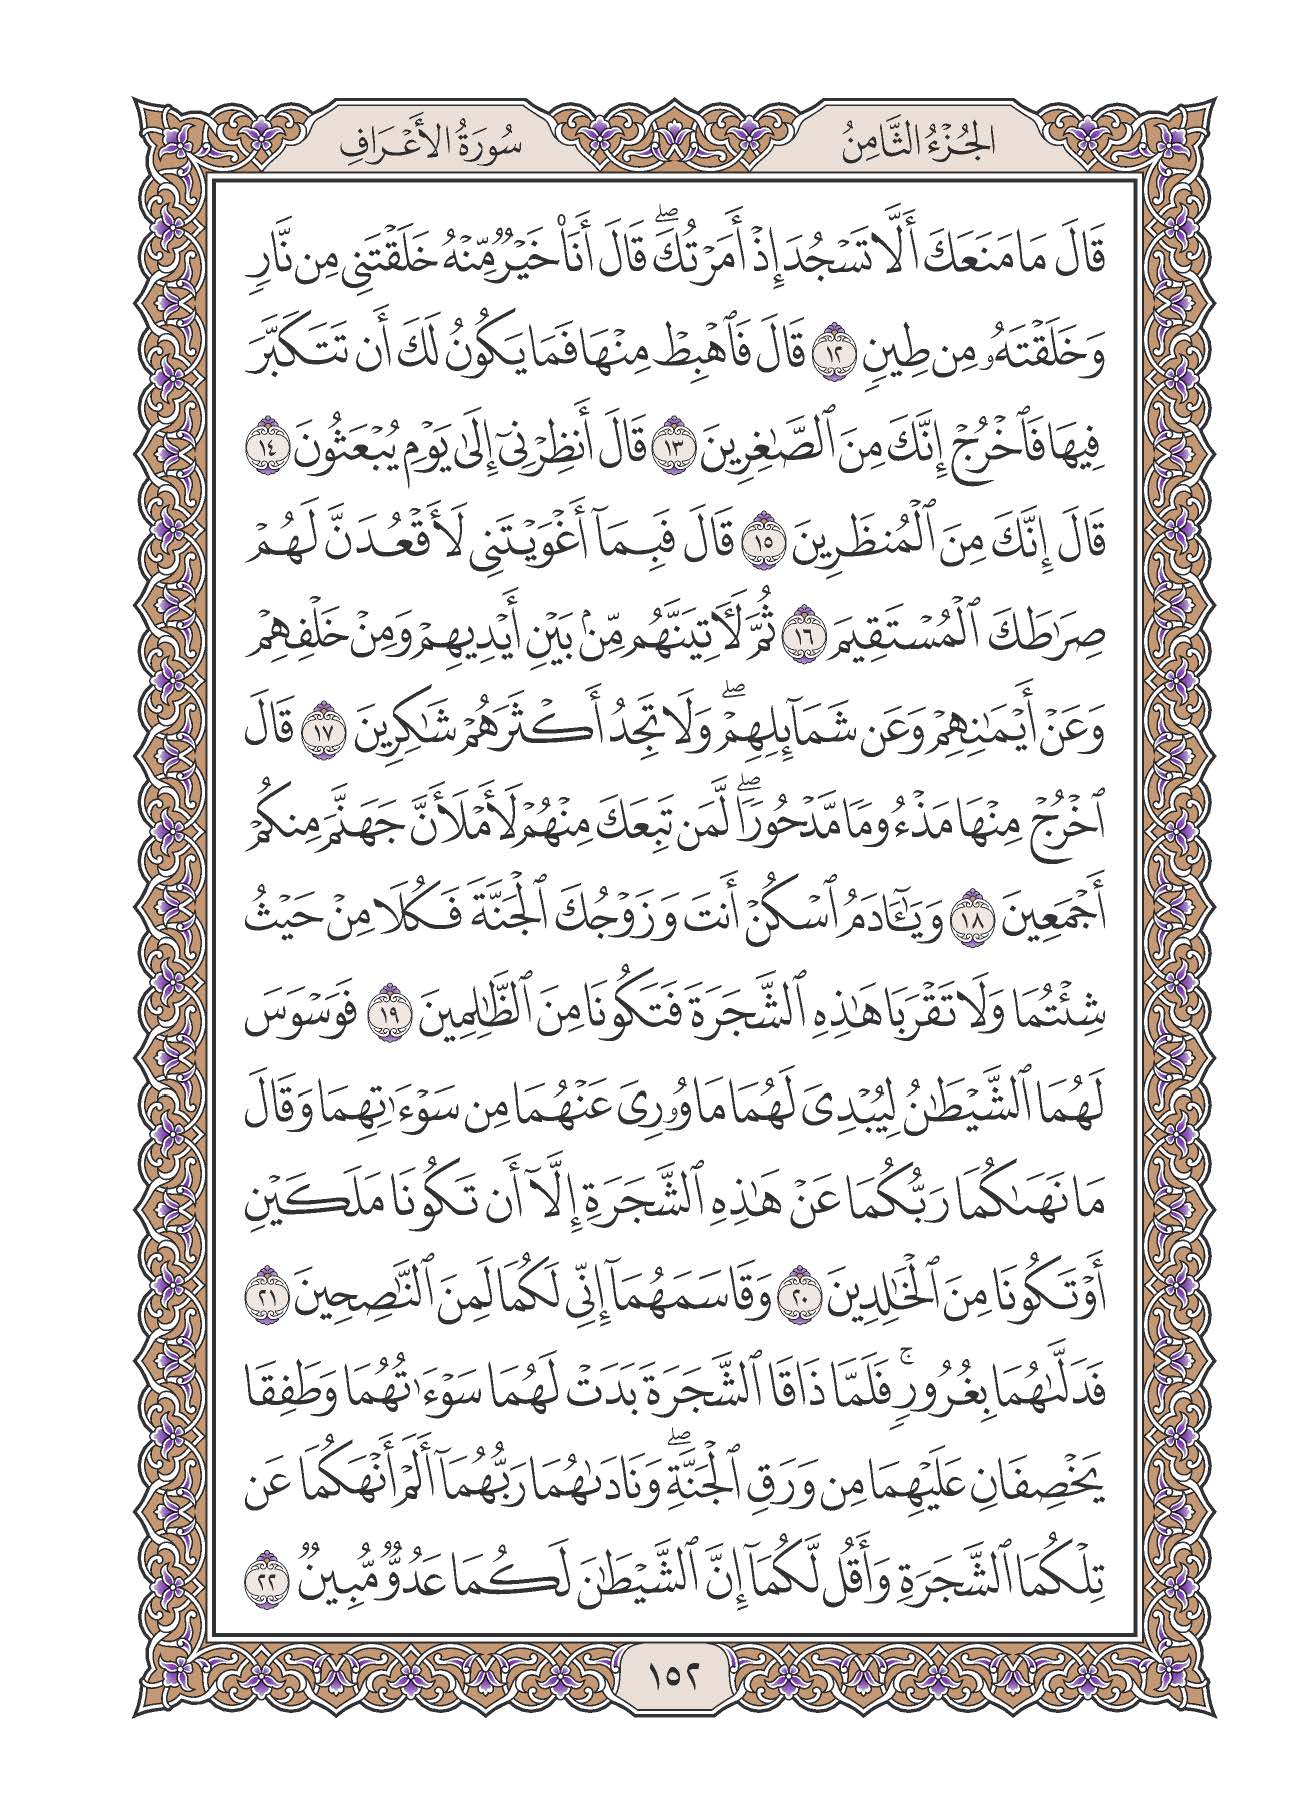 الجُزْءُ الثَّامِنُ
سُورَةُ الأَعْرَافِ
قَالَ مَا مَنَعَكَ أَلَّا تَسْجُدَ إِذْ أَمَرْتُكَۖ قَالَ أَنَا۠ خَيْرٌ مِّنْهُ خَلَقْتَنِى مِن نَّارٍ
وَخَلَقْتَهُۥ مِن طِينٍ ١٢ قَالَ فَٱهْبِطْ مِنْهَا فَمَا يَكُونُ لَكَ أَن تَتَكَبَّرَ
فِيهَا فَٱخْرُجْ إِنَّكَ مِنَ ٱلصَّٰغِرِينَ ١٣ قَالَ أَنظِرْنِىٓ إِلَىٰ يَوْمِ يُبْعَثُونَ ١٤
قَالَ إِنَّكَ مِنَ ٱلْمُنظَرِينَ ١٥ قَالَ فَبِمَآ أَغْوَيْتَنِى لَأَقْعُدَنَّ لَهُمْ
صِرَٰطَكَ ٱلْمُسْتَقِيمَ ١٦ ثُمَّ لَـَٔاتِيَنَّهُم مِّنۢ بَيْنِ أَيْدِيهِمْ وَمِنْ خَلْفِهِمْ
وَعَنْ أَيْمَٰنِهِمْ وَعَن شَمَآئِلِهِمْۖ وَلَا تَجِدُ أَكْثَرَهُمْ شَٰكِرِينَ ١٧ قَالَ
ٱخْرُجْ مِنْهَا مَذْءُومًا مَّدْحُورًاۖ لَّمَن تَبِعَكَ مِنْهُمْ لَأَمْلَأَنَّ جَهَنَّمَ مِنكُمْ
أَجْمَعِينَ ١٨ وَيَٰٓـَٔادَمُ ٱسْكُنْ أَنتَ وَزَوْجُكَ ٱلْجَنَّةَ فَكُلَا مِنْ حَيْثُ
شِئْتُمَا وَلَا تَقْرَبَا هَٰذِهِ ٱلشَّجَرَةَ فَتَكُونَا مِنَ ٱلظَّٰلِمِينَ ١٩ فَوَسْوَسَ
لَهُمَا ٱلشَّيْطَٰنُ لِيُبْدِىَ لَهُمَا مَا وُۥرِىَ عَنْهُمَا مِن سَوْءَٰتِهِمَا وَقَالَ
مَا نَهَىٰكُمَا رَبُّكُمَا عَنْ هَٰذِهِ ٱلشَّجَرَةِ إِلَّآ أَن تَكُونَا مَلَكَيْنِ
أَوْ تَكُونَا مِنَ ٱلْخَٰلِدِينَ ٢٠ وَقَاسَمَهُمَآ إِنِّى لَكُمَا لَمِنَ ٱلنَّٰصِحِينَ ٢١
فَدَلَّىٰهُمَا بِغُرُورٍۚ فَلَمَّا ذَاقَا ٱلشَّجَرَةَ بَدَتْ لَهُمَا سَوْءَٰتُهُمَا وَطَفِقَا
يَخْصِفَانِ عَلَيْهِمَا مِن وَرَقِ ٱلْجَنَّةِۖ وَنَادَىٰهُمَا رَبُّهُمَآ أَلَمْ أَنْهَكُمَا عَن
تِلْكُمَا ٱلشَّجَرَةِ وَأَقُل لَّكُمَآ إِنَّ ٱلشَّيْطَٰنَ لَكُمَا عَدُوٌّ مُّبِينٌ ٢٢
١٥٢